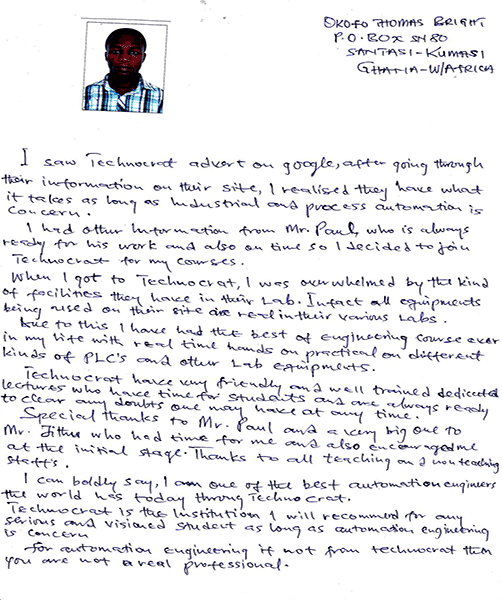 OKOFO THOMAS BRIGHT
P.O. BOX SN 80
SANTASI-KUMASI
GHANA-W/AFRICA
I saw Technocrat advert on google, after going through
their information on their site, I realised they have what
it takes as long as Industrial and process automation is
concern.
I had other Information from Mr. Paul, who is always
ready for his work and also on time so I decided to join
Technocrat for my courses.
When I got to Technocrat, I was overwhelmed by the kind
of facilities they have in their Lab. Infact all equipments
being used on their site are real in their various Labs.
Due to this I have had the best of engineering course ever
in my life with real time hands on practical on different
kinds of PLC's and other Lab equipments.
Technocrat have very friendly and well trained dedicated
lectures who have time for students and are always ready
to clear any doubts one may have at any time.
Special thanks to Mr. Paul and a very big one to
Mr. Jithu who had time for me and also encouraged me
at the initial stage. Thanks to all teaching and non teaching
staffs.
I can boldly say, I am one of the best automation engineers
the world has today throug Technocrat.
Technocrat is the Institution I will recommed for any
serious and visioned student as long as automation engineering
is concern
For automation engineering if not from technocrat then
you are not a real professional.